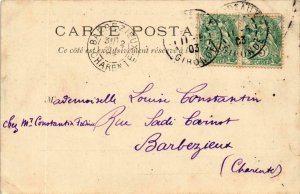 CARTE POSTALE
Ce côté est exclusivement réservé à
BARBEZIEUX
CHARENTE
03
GIRONDE
Mademoiselle Louise Constantin
chez Mr Constantin
Rue Sadi Carnot
Barbezieux
(Charente)